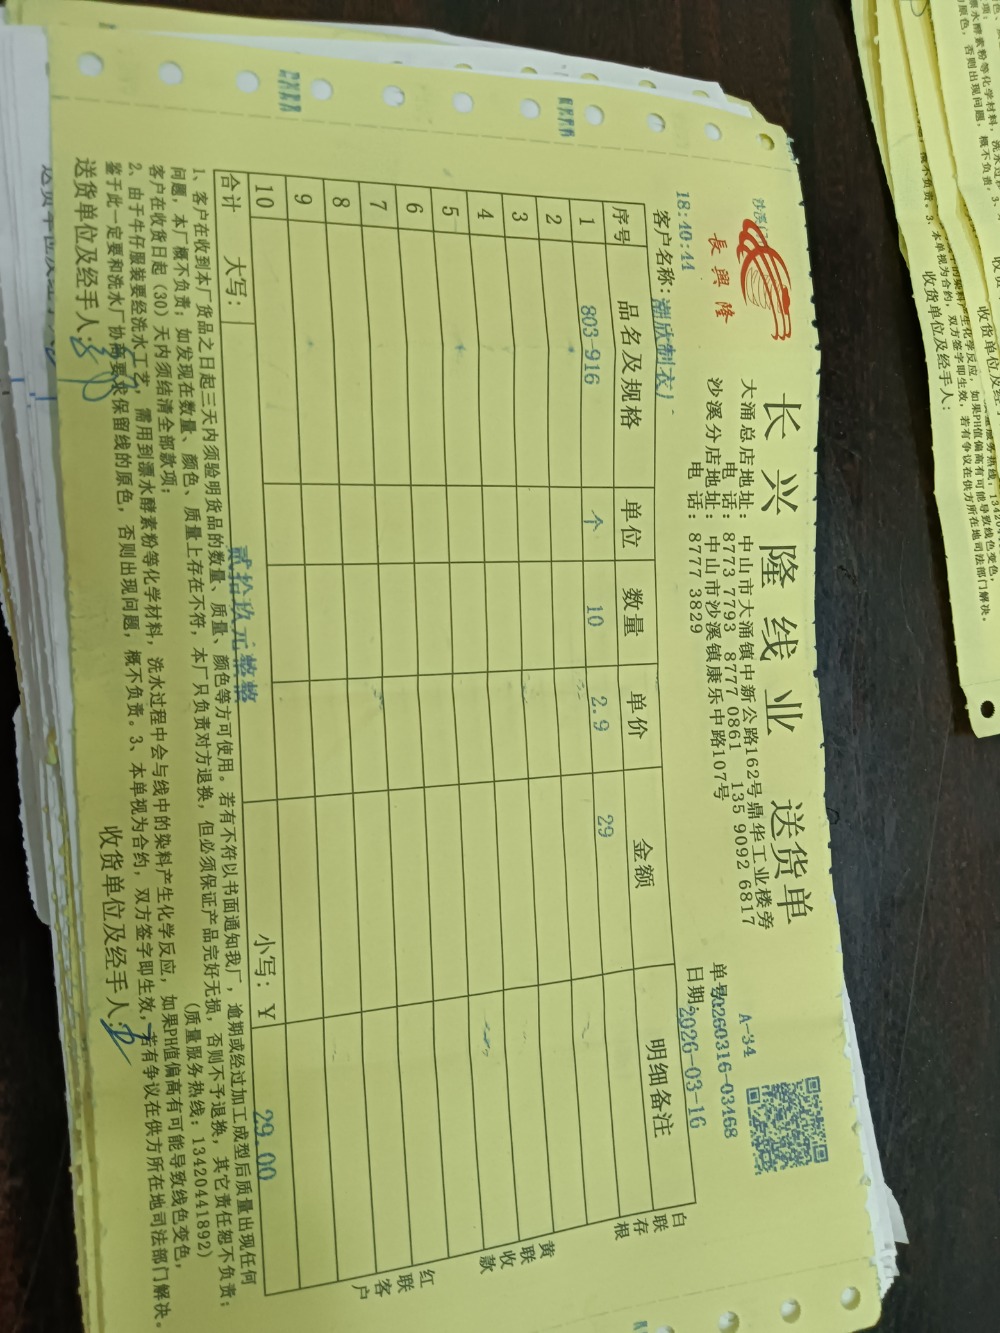 長興隆
长兴隆线业 送货单
大涌总店地址：中山市大涌镇中新公路162号鼎华工业楼旁
电 话：8773 7793 8777 0861 135 9092 6817
沙溪分店地址：中山市沙溪镇康乐中路107号
电 话：8777 3829
A-34
单号20260316-03468
日期：2026-03-16
18:40:44
客户名称：潮欣制衣厂
序号 品名及规格 单位 数量 单价 金额 明细备注
1 803-916 个 10 2.9 29
2
3
4
5
6
7
8
9
10
合计 大写： 贰拾玖元整整 小写：Y 29.00
白联存根
黄联收款
红联客户
1、客户在收到本厂货品之日起三天内须验明货品的数量、质量、颜色等方可使用。若有不符以书面通知我厂，逾期或经过加工成型后质量出现任何
问题，本厂概不负责；如发现在数量、颜色、质量上存在不符，本厂只负责对方退换，但必须保证产品完好无损，否则不予退换，其它责任恕不负责；
客户在收货日起（30）天内须结清全部款项； （质量服务热线：13420441892）
2、由于牛仔服装要经洗水工艺，需用到漂水酵素粉等化学材料，洗水过程中会与线中的染料产生化学反应，如果PH值偏高有可能导致线色变色，
鉴于此一定要和洗水厂协商要求保留线的原色，否则出现问题，概不负责。3、本单视为合约，双方签字即生效，若有争议在供方所在地司法部门解决。
送货单位及经手人： 收货单位及经手人：